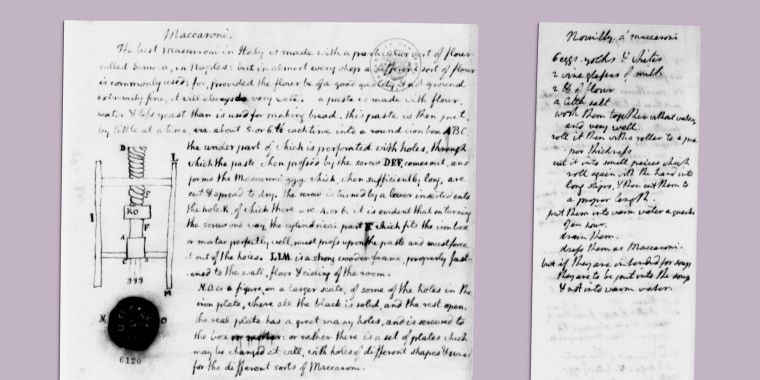 Maccaroni.
The best maccaroni in Italy is made with a particular sort of flour
called Semola, in Naples: but in almost every shop a different sort of flour
is commonly used; for, provided the flour be of a good quality & not ground
extremely fine, it will always do very well. a paste is made with flour,
water & less yeast than is used for making bread. this paste is then put,
by little at a time, viz. about 5. or 6 ℔ each time into a round iron box ABC.
the under part of which is perforated with holes, through
which the paste, when pressed by the screw DEF, comes out, and
forms the Maccaroni ggg. which, when sufficiently long, are
cut & spread to dry. the screw is turned by a lever inserted into
the hole K, of which there are 4. or 6. it is evident that on turning
the screw one way, the cylindrical part F. which fits the iron box
or mortar perfectly well, must press upon the paste and must force
it out of the holes. LLM. is a strong wooden frame, properly fast-
ened to the wall, floor & cieling of the room.
N.O. is a figure, on a larger scale, of some of the holes in the
iron plate, where all the black is solid, and the rest open.
the real plate has a great many holes, and is screwed to
the box or mortar: or rather there is a set of plates which
may be changed at will, with holes of different shapes & sizes
for the different sorts of Maccaroni.
D
L
E
KO
I
F
A
B
C
ggg
M
N.
O
6126
Nouilly a' maccaroni
6 eggs. yolks & whites
2 wine glasses of milk
2 ℔ of flour
a little salt
work them together without water
and very well.
roll it then with a roller to a pa
per thickness
cut it into small peices which
roll again with the hand into
long slips, & then cut them to
a proper length.
put them into warm water a quarter
of an hour.
drain them.
dress them as Maccaroni.
but if they are intended for soups
they are to be put in the soup
& not into warm water